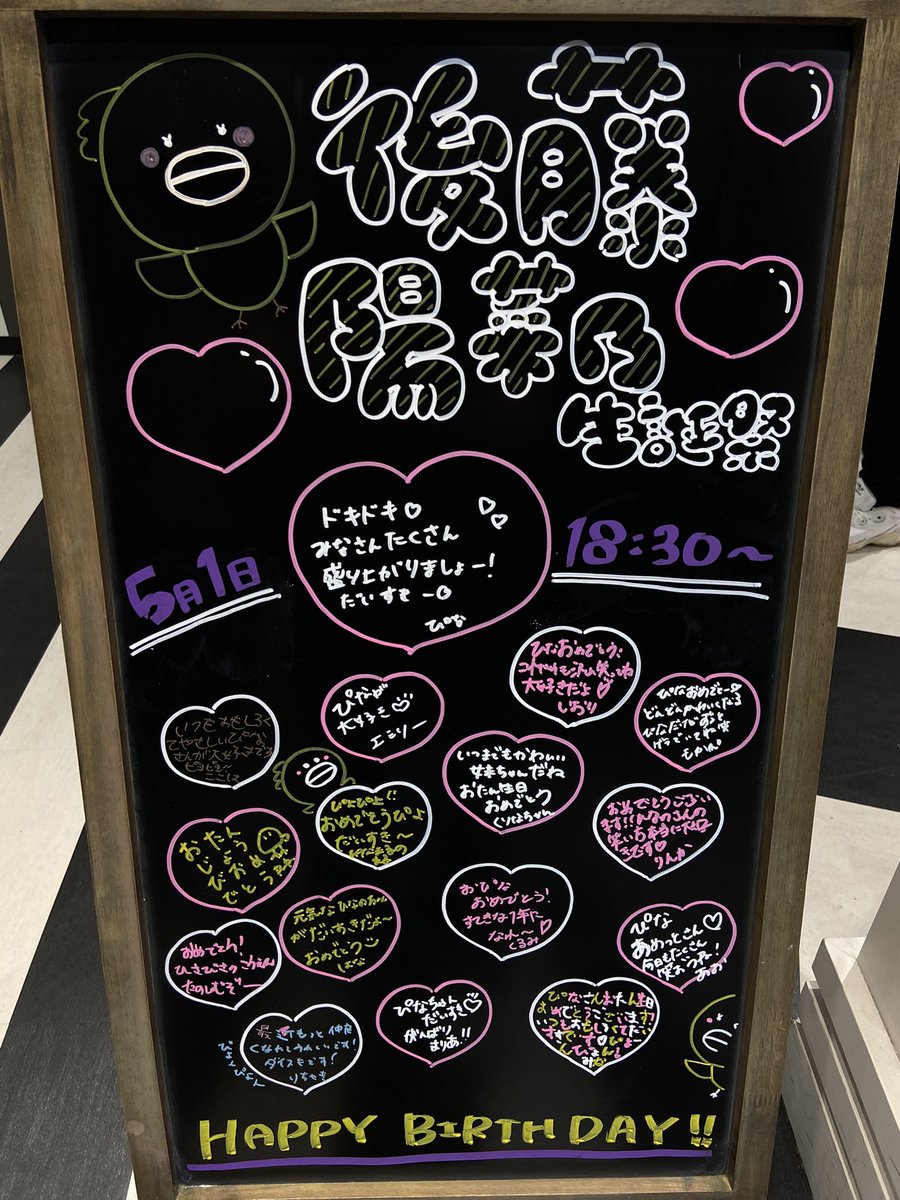 後藤
陽菜乃
生誕祭
5月1日
18:30～
ドキドキ♡
みなさんたくさん
盛り上がりましょー!
だいすきー
ぴな
ひなおめでとう
大好きだよ♡
しおり
ぴなが
大好き♡
エミリー
ぴなおめでとう
どんどんかわいくなる
いつもおもしろく
ピヨピヨ
ここは
いつまでもかわいい
妹ちゃんだね
おたん生日
おめでとう
くりはちゃん
ぴよぴよ
おめでとうぴよ
だいすき～
おめでとうござい
ます!!
りんか
おたん
じょう
びおめ
でとう
おぴな
おめでとう!
すてきな1年に
なれ～
くるみ
元気なひなのちゃん
がだいすきだよ～
おめでとう
はな
ぴな♡
今日もたくさん
笑おうね!
あお
おめでとん!
たのしむぞー
ぴなちゃん
だいすき♡
がんばり
まりあ!!
ぴなさんおたん生日
おめでとうございます!
最近もっと仲良
くなれてうれしいです!
ダイスキです!
りちゃき
HAPPY BIRTHDAY!!